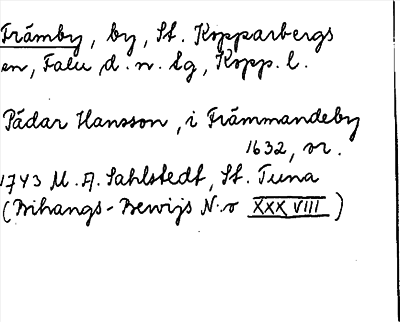 Främby, by, St. Kopparbergs
sn, Falu d. n. lg, Kopp. l.
Pädar Hansson, i Främmandeby
1632, or.
1743 M. A. Sahlstedt, St. Tuna
(Bihangs-Bewijs N:o XXXVIII)